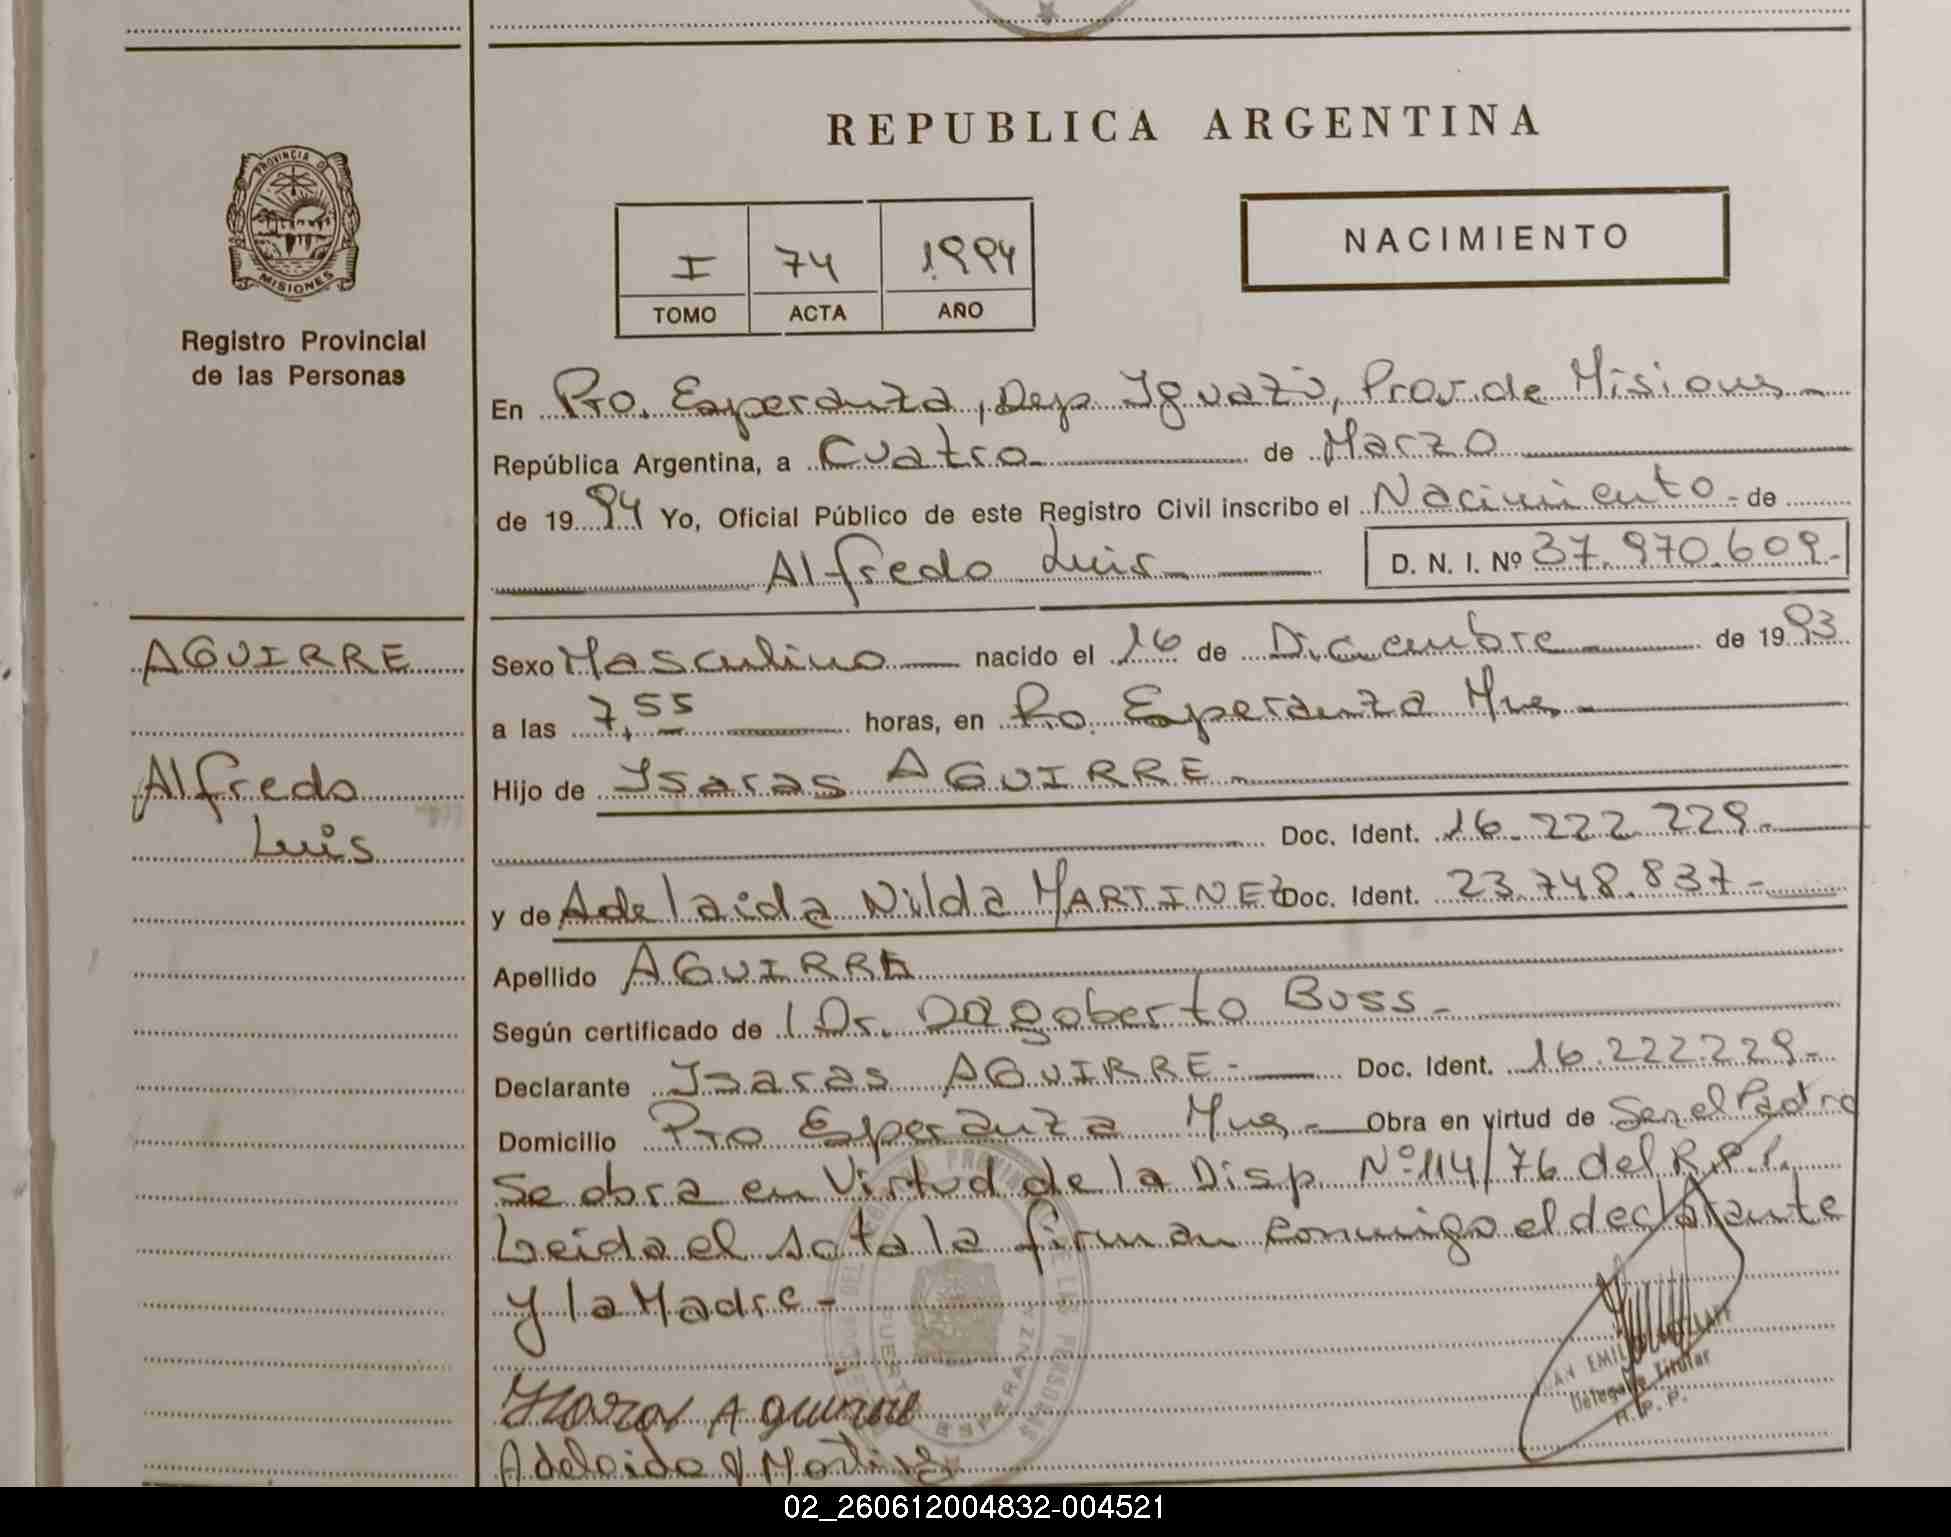 REPUBLICA ARGENTINA
PROVINCIA DE MISIONES
Registro Provincial
de las Personas
I 74 1994
TOMO ACTA AÑO
NACIMIENTO
En Pto. Esperanza, Dep. Iguazú, Prov. de Misiones
República Argentina, a Cuatro de Marzo
de 1994 Yo, Oficial Público de este Registro Civil inscribo el Nacimiento de
Alfredo Luis D. N. I. Nº 37.970.609.-
AGUIRRE
Alfredo
Luis
Sexo Masculino nacido el 16 de Diciembre de 1993
a las 7,55 horas, en Pto. Esperanza Mnes.-
Hijo de Isaras AGUIRRE.-
Doc. Ident. 16.222.229.-
y de Adelaida Nilda MARTINEZ Doc. Ident. 23.748.837-
Apellido AGUIRRE
Según certificado de Dr. Dagoberto Buss.-
Declarante Isaras AGUIRRE.- Doc. Ident. 16.222.229.-
Domicilio Pto Esperanza Mnes.- Obra en virtud de Ser el Padre
Se obra en Virtud de la Disp. Nº 114/76 del R.P.P.
Leida el Acta la firman conmigo el declarante
y la Madre.-
Isaras Aguirre
Adelaida N Martinez
Delegado Titular
R. P. P.
02_260612004832-004521